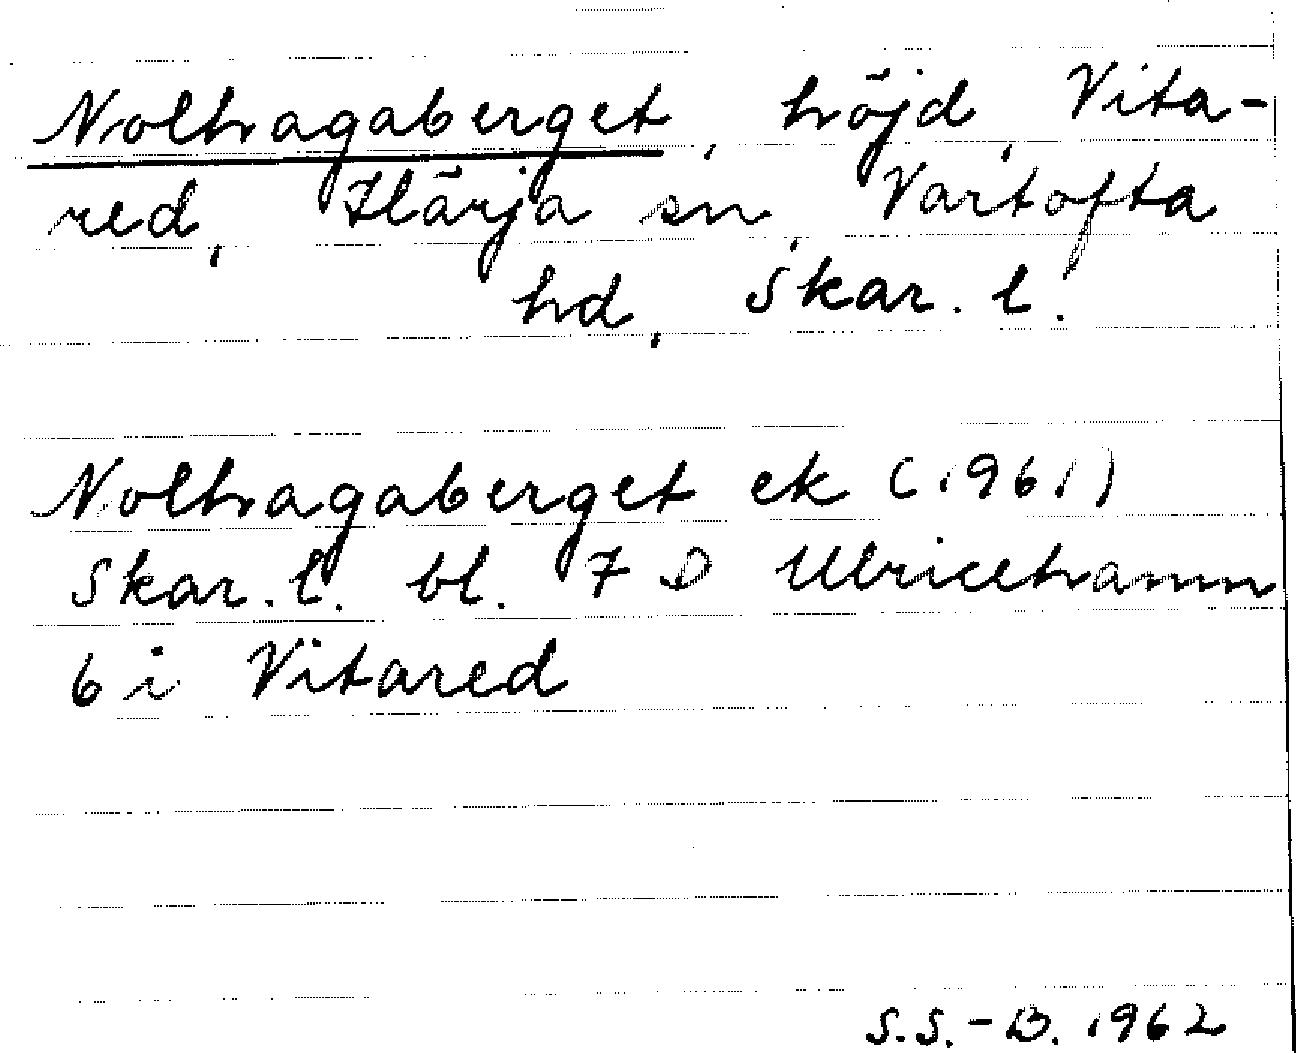 Nolhagaberget, höjd, Vita-
red, Härja sn, Vartofta
hd, Skar. l.
Nolhagaberget ek (1961)
Skar. l. bl. 7 D Ulricehamn
6 i Vitared
S.S.-B. 1962